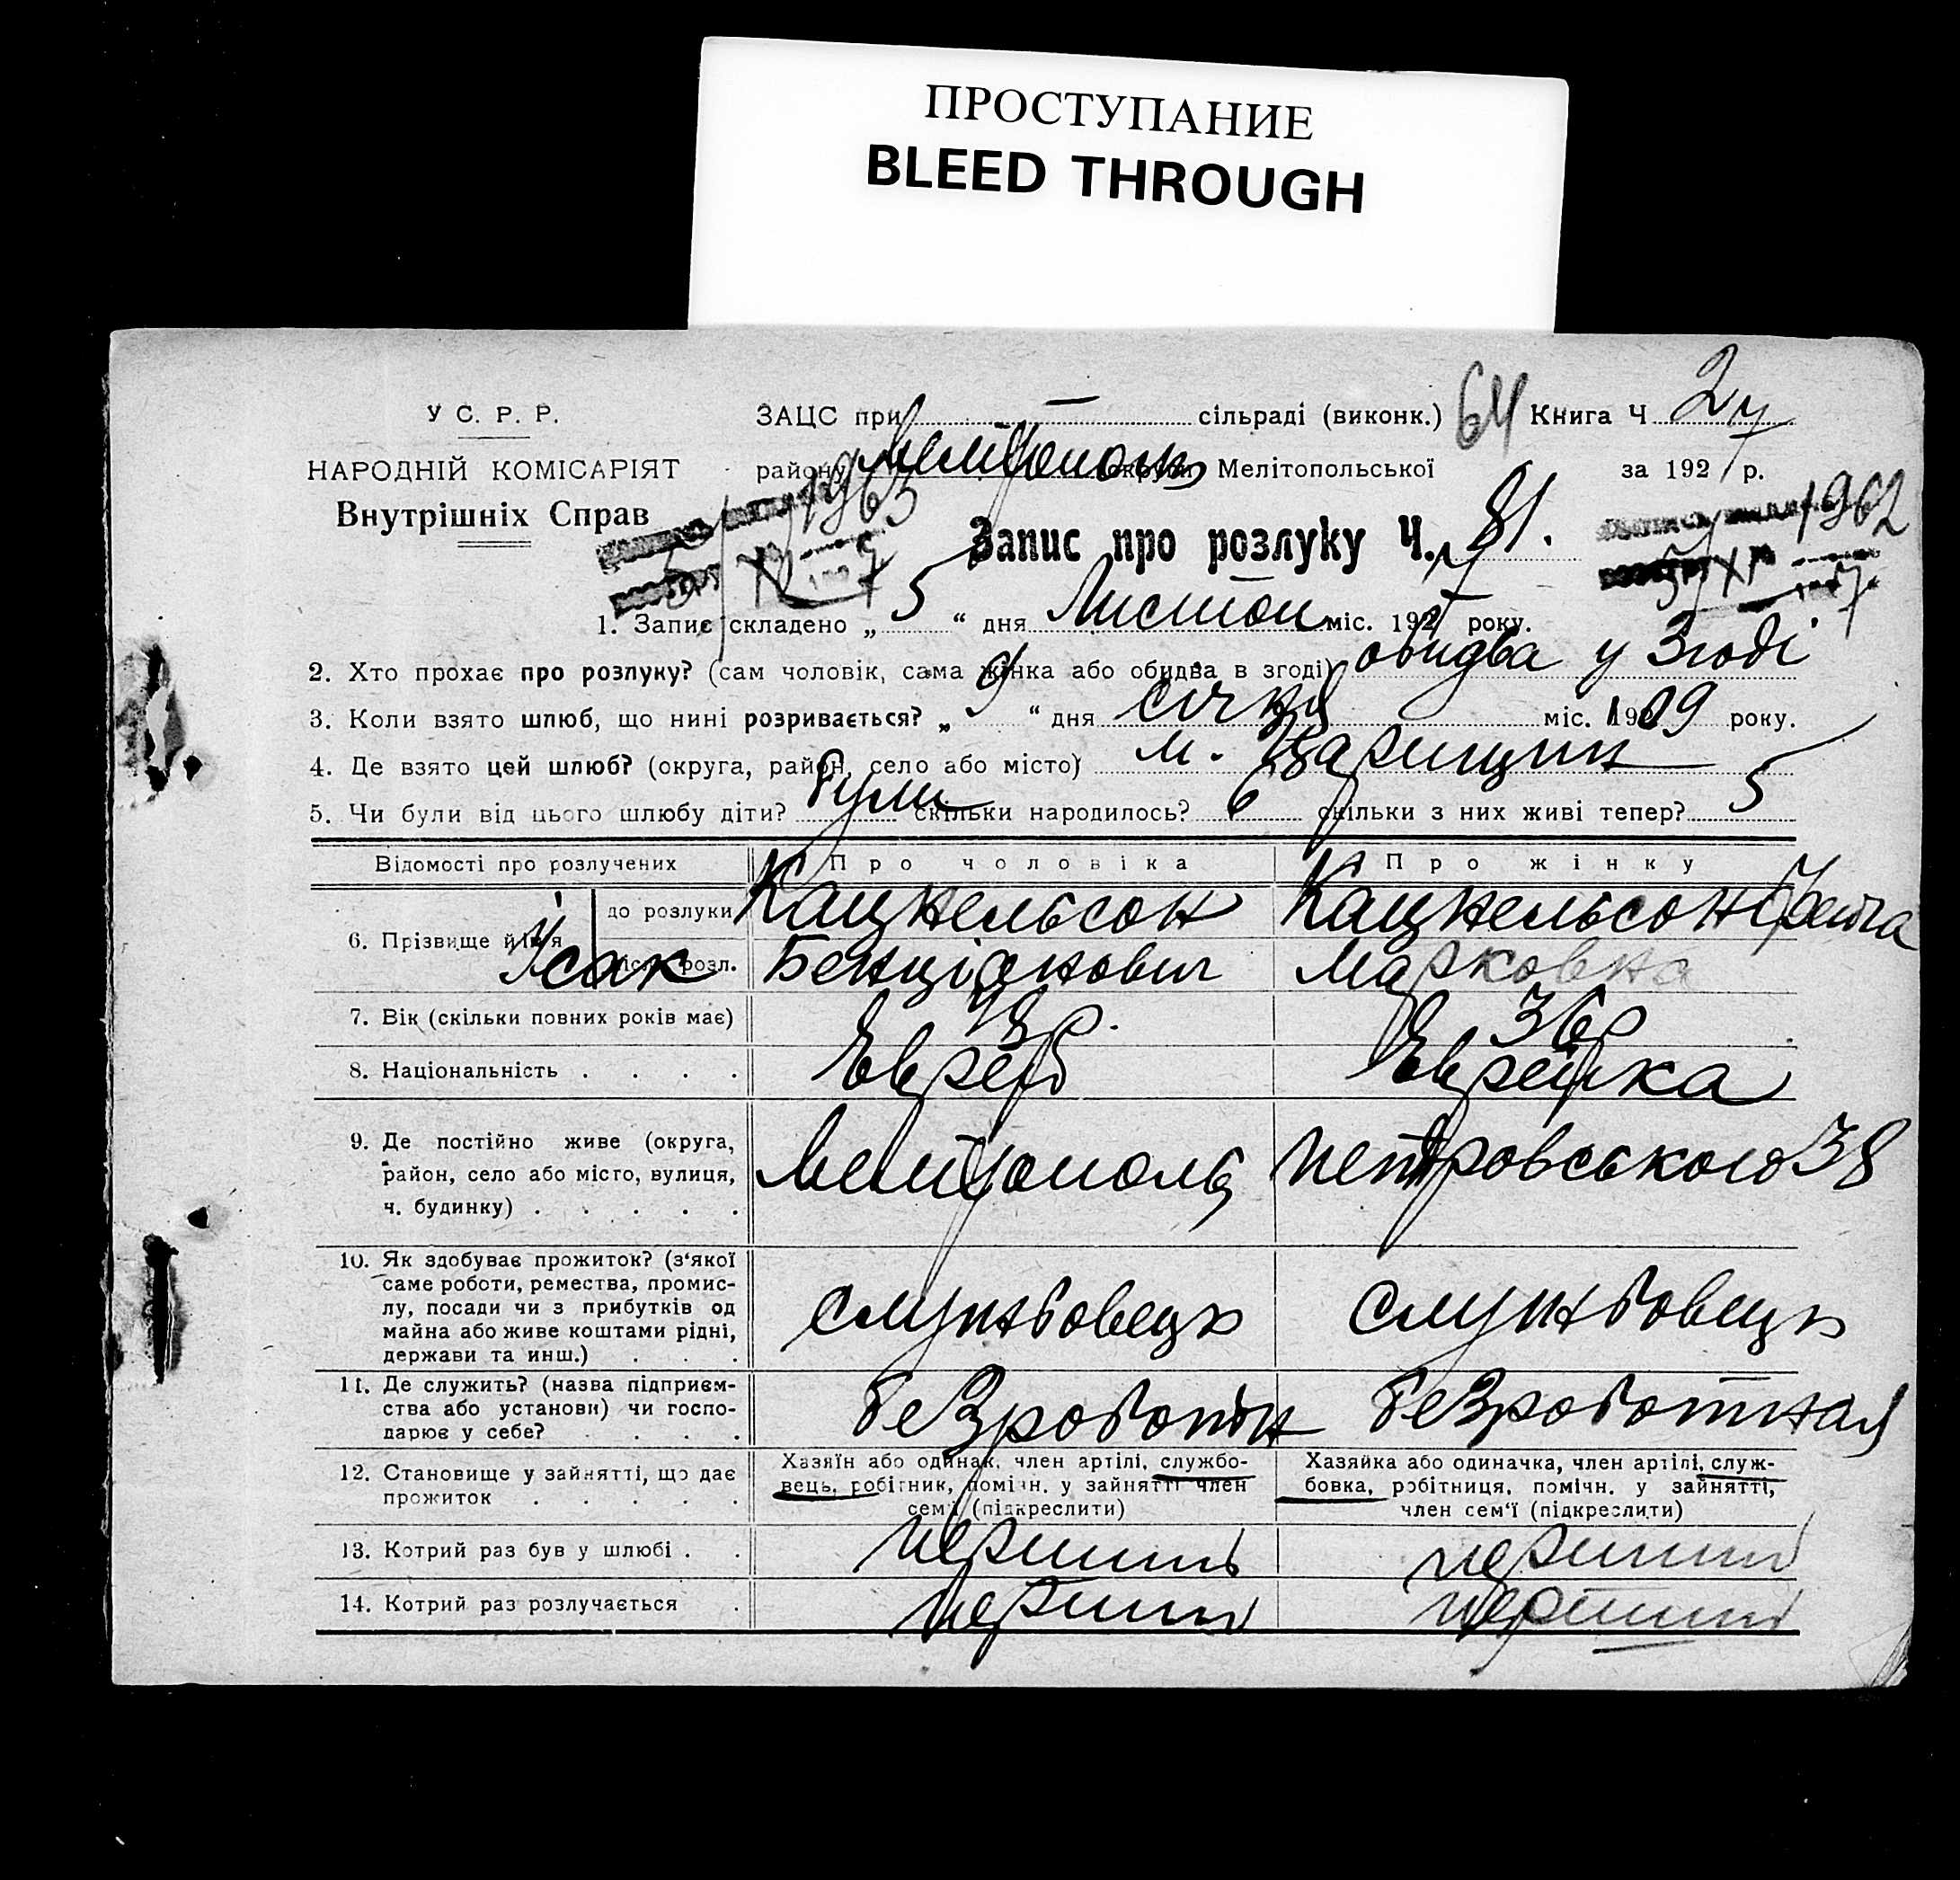 ПРОСТУПАНИЕ
BLEED THROUGH
У С. Р. Р.
НАРОДНІЙ КОМІСАРІЯТ
Внутрішніх Справ
ЗАЦС при — сільраді (виконк.) 64 Книга Ч 2
району Мелітополь округи Мелітопольської за 1927 р.
1963
1962
Запис про розлуку Ч. 81.
1. Запис складено „ 5 “ дня Листоп міс. 1927 року.
2. Хто прохає про розлуку? (сам чоловік, сама жінка або обидва в згоді) обидва у Згоді
3. Коли взято шлюб, що нині розривається? „ 9 “ дня січня міс. 1909 року.
4. Де взято цей шлюб? (округа, район, село або місто) м. Царицин
5. Чи були від цього шлюбу діти? були скільки народилось? 6 скільки з них живі тепер? 5
Відомості про розлучених Про чоловіка Про жінку
6. Прізвище й ім'я до розлуки Кацнельсон Кацнельсон
Ісак після розл. Бенціонович Марковна
7. Вік (скільки повних років має) 36 р
8. Національність . . . . Еврей Еврейка
9. Де постійно живе (округа, район, село або місто, вулиця, ч. будинку) . . . . . Мелітополь Петровського 38
10. Як здобуває прожиток? (з'якої саме роботи, ремества, промислу, посади чи з прибутків од майна або живе коштами рідні, держави та инш.) . . . Службовець Службовець
11. Де служить? (назва підприємства або установи) чи господарює у себе? . . . . безроботн безроботная
12. Становище у зайнятті, що дає прожиток . . . . .
Хазяїн або одинак, член артілі, службовець, робітник, помічн. у зайнятті член сем'ї (підкреслити)
Хазяйка або одиначка, член артілі, службовка, робітниця, помічн. у зайнятті, член сем'ї (підкреслити)
13. Котрий раз був у шлюбі . . перший перший
14. Котрий раз розлучається . перший перший